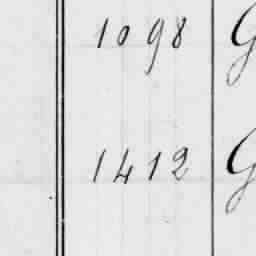 1098 G
1412 G